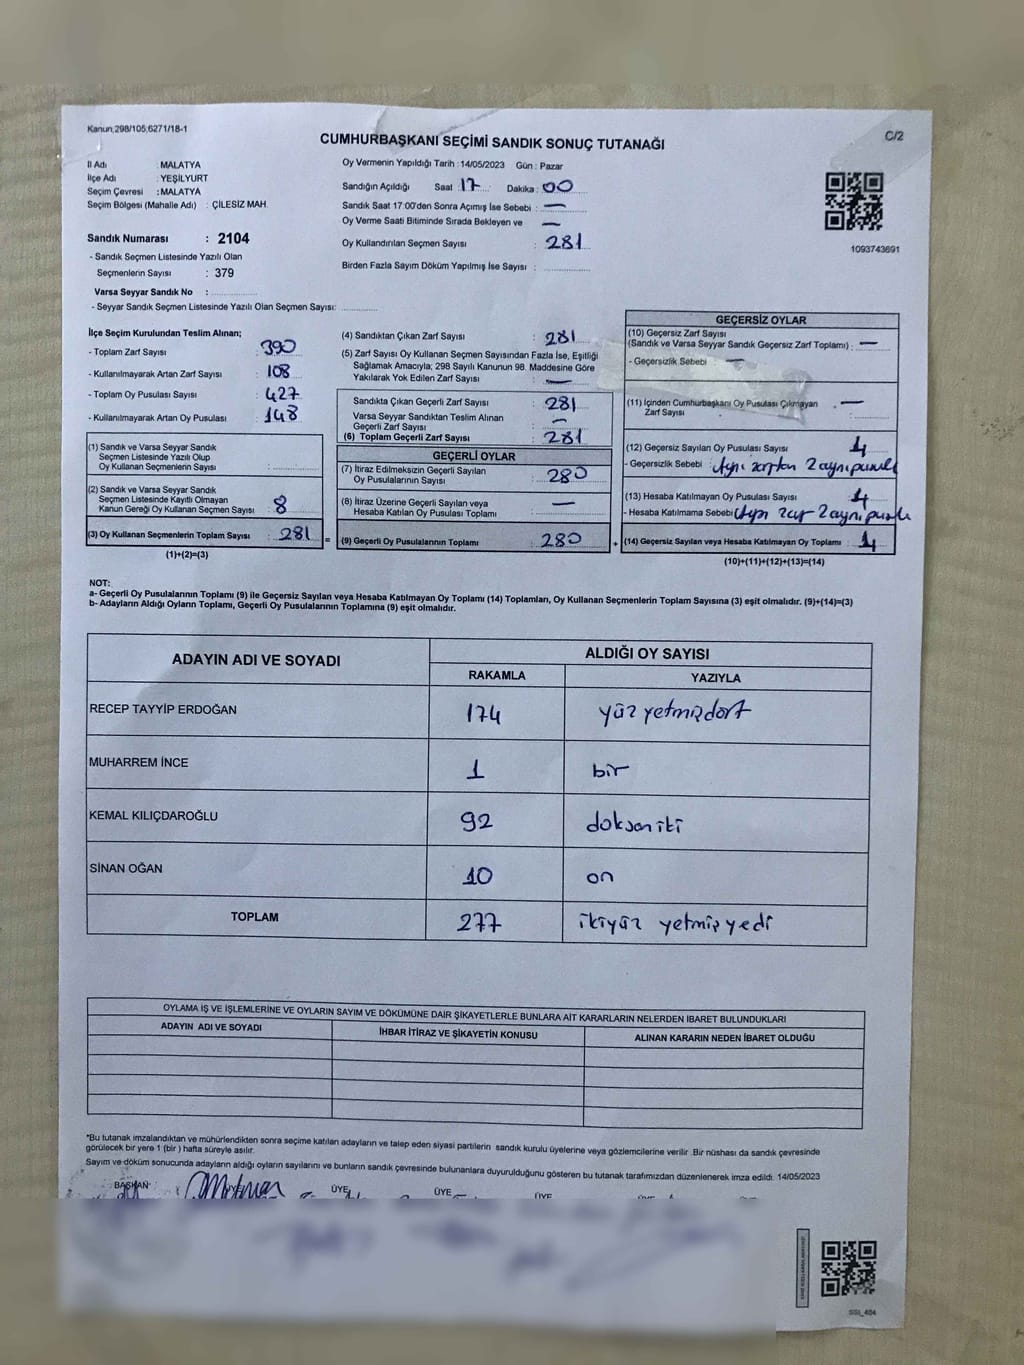 Kanun;298/105;6271/18-1
C/2
CUMHURBAŞKANI SEÇİMİ SANDIK SONUÇ TUTANAĞI
İl Adı : MALATYA
İlçe Adı : YEŞİLYURT
Seçim Çevresi : MALATYA
Seçim Bölgesi (Mahalle Adı) : ÇİLESİZ MAH.
Sandık Numarası : 2104
- Sandık Seçmen Listesinde Yazılı Olan
Seçmenlerin Sayısı : 379
Varsa Seyyar Sandık No :
- Seyyar Sandık Seçmen Listesinde Yazılı Olan Seçmen Sayısı:
Oy Vermenin Yapıldığı Tarih : 14/05/2023 Gün : Pazar
Sandığın Açıldığı Saat : 17 Dakika : 00
Sandık Saat 17:00'den Sonra Açımış İse Sebebi : —
Oy Verme Saati Bitiminde Sırada Bekleyen ve —
Oy Kullandırılan Seçmen Sayısı : 281
Birden Fazla Sayım Döküm Yapılmış İse Sayısı :
1093743691
İlçe Seçim Kurulundan Teslim Alınan;
- Toplam Zarf Sayısı : 390
- Kullanılmayarak Artan Zarf Sayısı : 108
- Toplam Oy Pusulası Sayısı : 427
- Kullanılmayarak Artan Oy Pusulası : 148
(1) Sandık ve Varsa Seyyar Sandık
Seçmen Listesinde Yazılı Olup
Oy Kullanan Seçmenlerin Sayısı :
(2) Sandık ve Varsa Seyyar Sandık
Seçmen Listesinde Kayıtlı Olmayan
Kanun Gereği Oy Kullanan Seçmen Sayısı : 8
(3) Oy Kullanan Seçmenlerin Toplam Sayısı : 281 =
(1)+(2)=(3)
(4) Sandıktan Çıkan Zarf Sayısı : 281
(5) Zarf Sayısı Oy Kullanan Seçmen Sayısından Fazla İse, Eşitliği
Sağlamak Amacıyla; 298 Sayılı Kanunun 98. Maddesine Göre
Yakılarak Yok Edilen Zarf Sayısı : —
Sandıkta Çıkan Geçerli Zarf Sayısı : 281
Varsa Seyyar Sandıktan Teslim Alınan
Geçerli Zarf Sayısı : —
(6) Toplam Geçerli Zarf Sayısı : 281
GEÇERLİ OYLAR
(7) İtiraz Edilmeksizin Geçerli Sayılan
Oy Pusulalarının Sayısı : 280
(8) İtiraz Üzerine Geçerli Sayılan veya
Hesaba Katılan Oy Pusulası Toplamı : —
(9) Geçerli Oy Pusulalarının Toplamı : 280 +
GEÇERSİZ OYLAR
(10) Geçersiz Zarf Sayısı
(Sandık ve Varsa Seyyar Sandık Geçersiz Zarf Toplamı) : —
- Geçersizlik Sebebi : —
(11) İçinden Cumhurbaşkanı Oy Pusulası Çıkmayan
Zarf Sayısı : —
(12) Geçersiz Sayılan Oy Pusulası Sayısı : 4
- Geçersizlik Sebebi : Aynı zarftan 2 aynı
(13) Hesaba Katılmayan Oy Pusulası Sayısı : 4
- Hesaba Katılmama Sebebi : 2 aynı
(14) Geçersiz Sayılan veya Hesaba Katılmayan Oy Toplamı : 4
(10)+(11)+(12)+(13)=(14)
NOT:
a- Geçerli Oy Pusulalarının Toplamı (9) ile Geçersiz Sayılan veya Hesaba Katılmayan Oy Toplamı (14) Toplamları, Oy Kullanan Seçmenlerin Toplam Sayısına (3) eşit olmalıdır. (9)+(14)=(3)
b- Adayların Aldığı Oyların Toplamı, Geçerli Oy Pusulalarının Toplamına (9) eşit olmalıdır.
ADAYIN ADI VE SOYADI
ALDIĞI OY SAYISI
RAKAMLA YAZIYLA
RECEP TAYYİP ERDOĞAN 174 yüz yetmişdört
MUHARREM İNCE 1 bir
KEMAL KILIÇDAROĞLU 92 doksaniki
SİNAN OĞAN 10 on
TOPLAM 277 ikiyüz yetmişyedi
OYLAMA İŞ VE İŞLEMLERİNE VE OYLARIN SAYIM VE DÖKÜMÜNE DAİR ŞİKAYETLERLE BUNLARA AİT KARARLARIN NELERDEN İBARET BULUNDUKLARI
ADAYIN ADI VE SOYADI İHBAR İTİRAZ VE ŞİKAYETİN KONUSU ALINAN KARARIN NEDEN İBARET OLDUĞU
*Bu tutanak imzalandıktan ve mühürlendikten sonra seçime katılan adayların ve talep eden siyasi partilerin sandık kurulu üyelerine veya gözlemcilerine verilir. Bir nüshası da sandık çevresinde
görülecek bir yere 1 (bir) hafta süreyle asılır.
Sayım ve döküm sonucunda adayların aldığı oyların sayılarını ve bunların sandık çevresinde bulunanlara duyurulduğunu gösteren bu tutanak tarafımızdan düzenlenerek imza edildi. 14/05/2023
BAŞKAN ÜYE ÜYE ÜYE
SSI_404